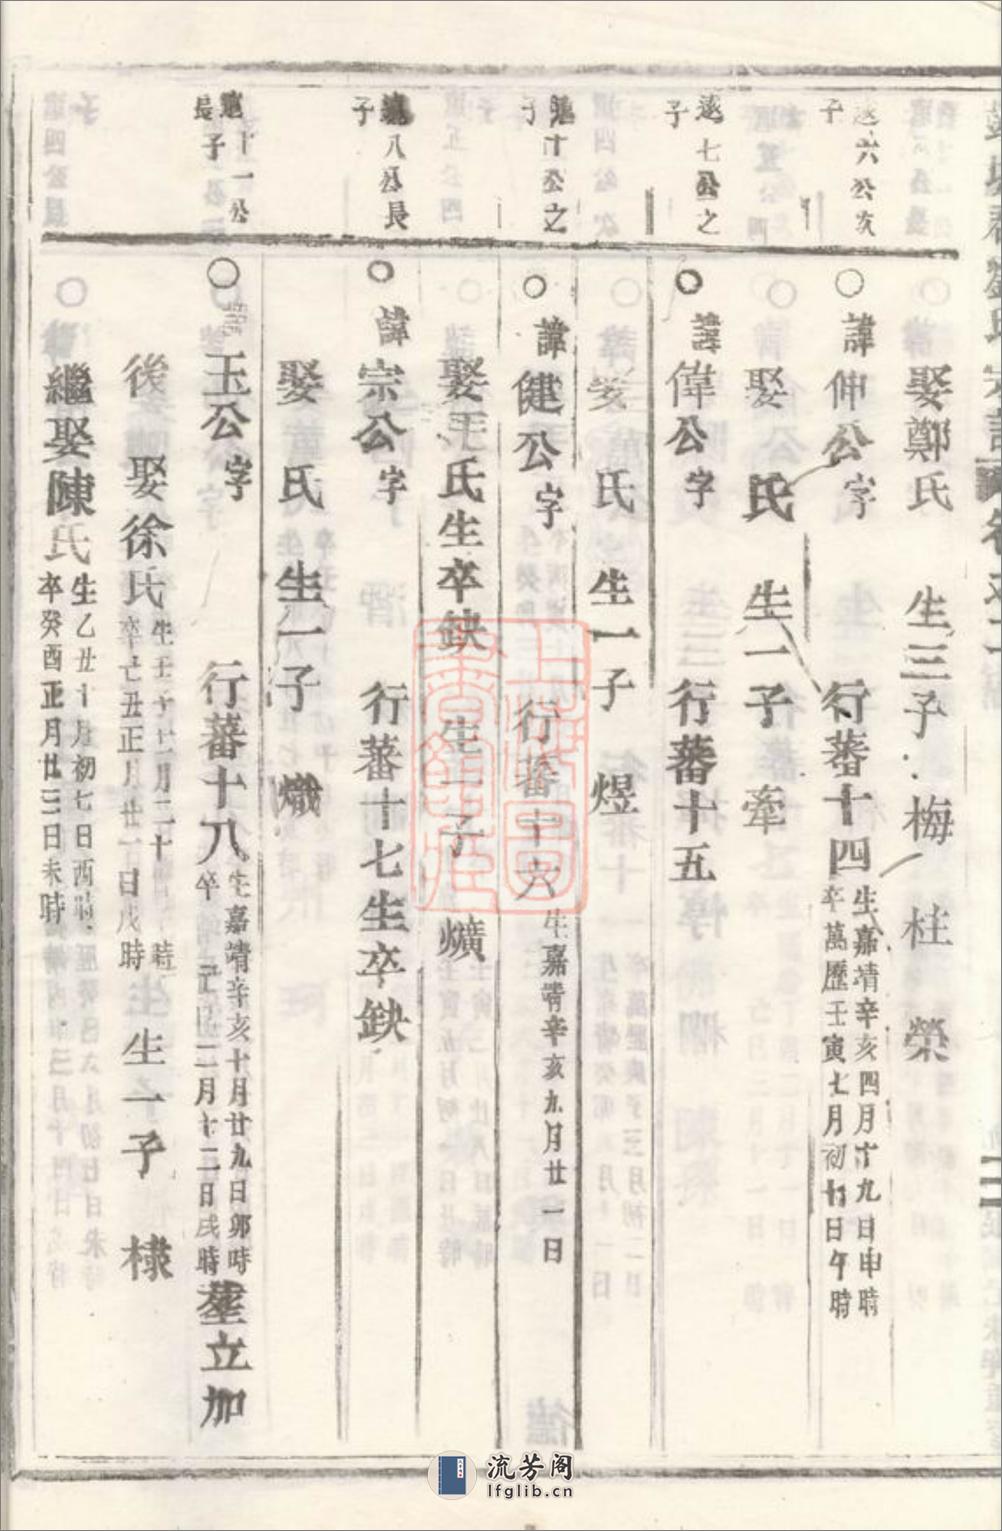 娶鄭氏 生三子 梅 柱 榮
遠六公次子
諱仲公字 行蕃十四 生嘉靖辛亥四月十九日申時 卒萬歷壬寅七月初十日午時
娶 氏 生一子 牽
遠七公之子
諱偉公字 行蕃十五
娶 氏 生一子 煜
十公之子
諱健公字 行蕃十六 生嘉靖辛亥九月廿一日
娶王氏生卒缺 生一子 爌
八公長子
諱宗公字 行蕃十七生卒缺
娶 氏 生一子 熾
十一公長子
諱玉公字 行蕃十八 生嘉靖辛亥十月廿九日卯時 卒 二月十二日戌時 立加
後娶徐氏 生壬子十一月二十 時 卒 丑正月廿一日戌時 生一子 棣
繼娶陳氏 生乙丑十月初七日酉時 卒癸酉正月廿三日未時
上海圖書館藏
流芳阁
lfglib.cn